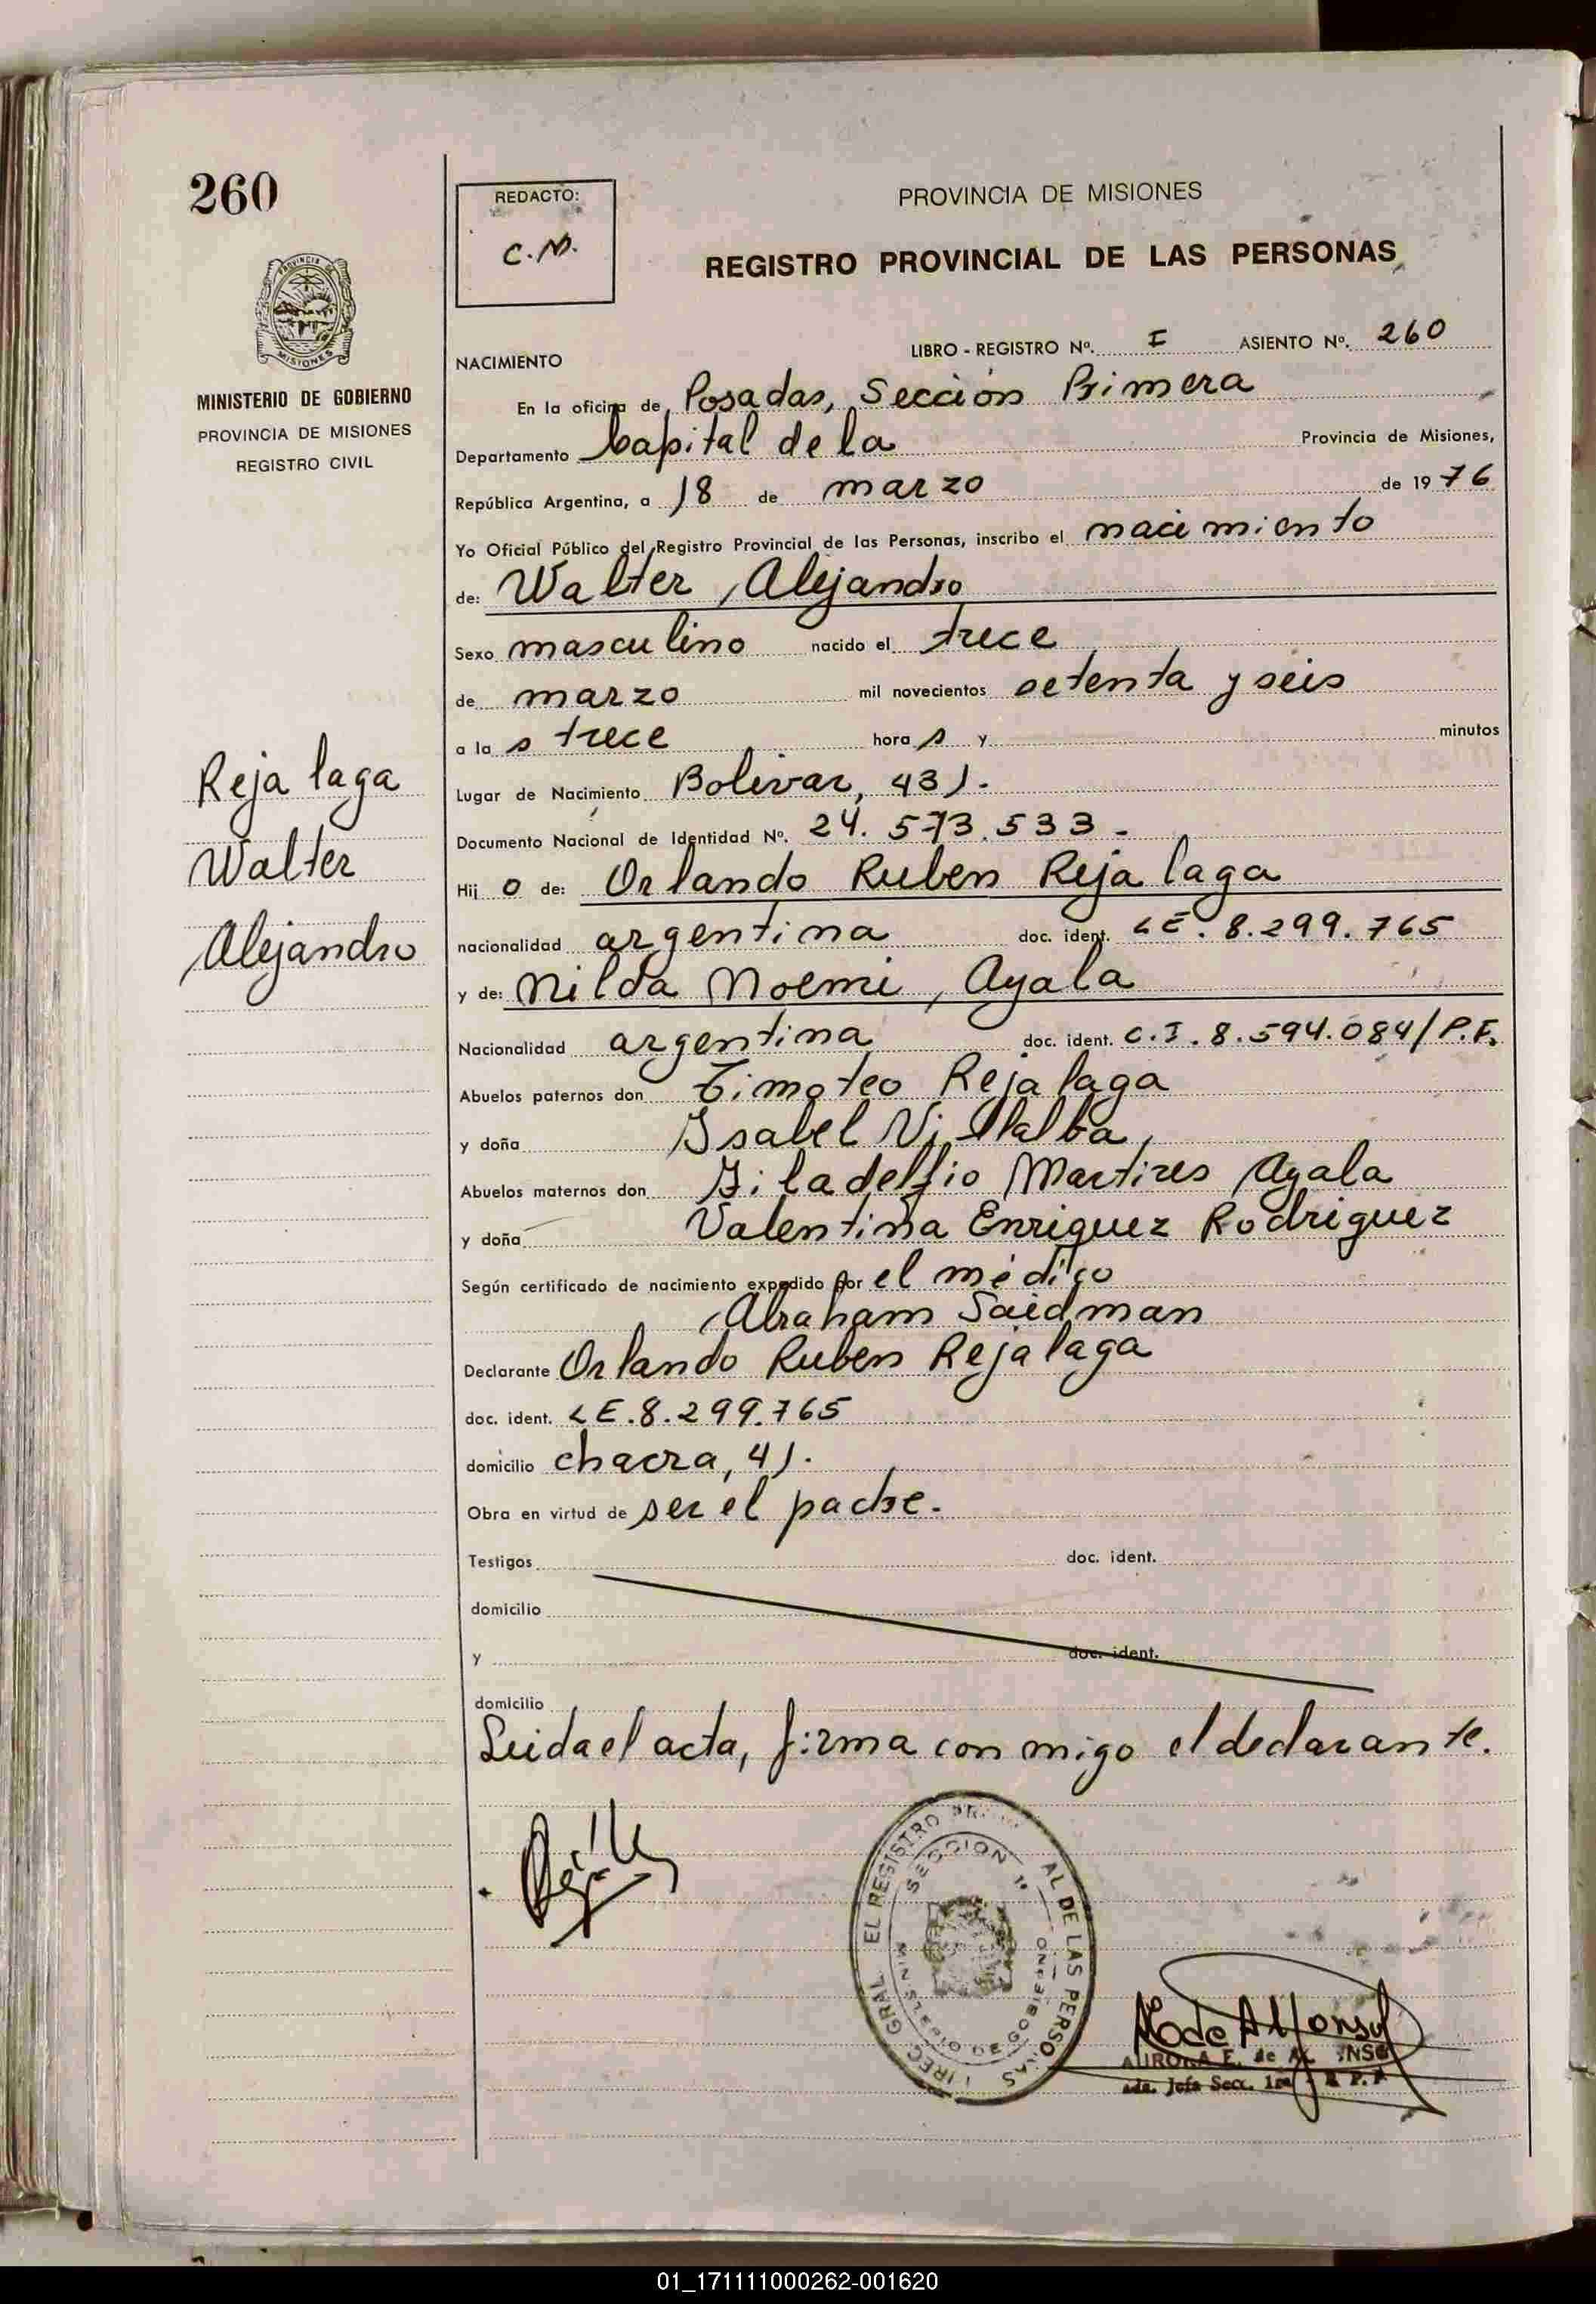 260
REDACTO:
C.M.
PROVINCIA DE MISIONES
REGISTRO PROVINCIAL DE LAS PERSONAS
PROVINCIA DE
MISIONES
MINISTERIO DE GOBIERNO
PROVINCIA DE MISIONES
REGISTRO CIVIL
Rejalaga
Walter
Alejandro
NACIMIENTO
LIBRO - REGISTRO Nº. I ASIENTO Nº. 260
En la oficina de Posadas, Sección Primera
Departamento Capital de la Provincia de Misiones,
República Argentina, a 18 de marzo de 1976
Yo Oficial Público del Registro Provincial de las Personas, inscribo el nacimiento
de: Walter Alejandro
Sexo masculino nacido el trece
de marzo mil novecientos setenta y seis
a las trece horas y minutos
Lugar de Nacimiento Bolivar, 431.
Documento Nacional de Identidad Nº. 24.573.533-
Hijo de: Orlando Ruben Rejalaga
nacionalidad argentina doc. ident. LE. 8.299.765
y de: Nilda Noemi, Ayala
Nacionalidad argentina doc. ident. C.I. 8.594.084/P.F.
Abuelos paternos don Timoteo Rejalaga
y doña Isabel Villalba,
Abuelos maternos don Filadelfio Martires Ayala
y doña Valentina Enriquez Rodriguez
Según certificado de nacimiento expedido por el médico
Abraham Saidman
Declarante Orlando Ruben Rejalaga
doc. ident. LE.8.299.765
domicilio chacra, 41.
Obra en virtud de ser el padre.
Testigos doc. ident.
domicilio
y doc. ident.
domicilio
Leida el acta, firma conmigo el declarante.
EL REGISTRO AL DE LAS PERSONAS
SECCION 1ª
MINISTERIO DE GOBIERNO
de Alfonso
AURORA E. de
Jefa Secc. 1ra
01_171111000262-001620